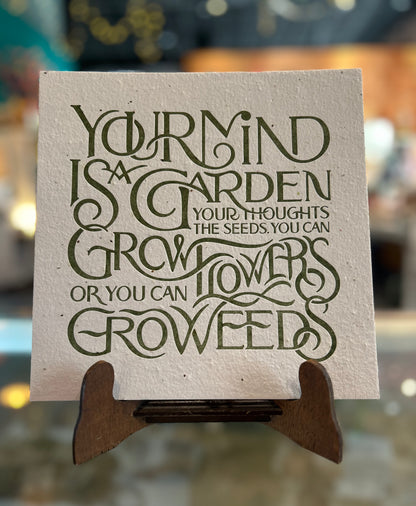 YOUR MIND
IS A GARDEN
YOUR THOUGHTS
THE SEEDS, YOU CAN
GROW FLOWERS
OR YOU CAN
GROWEEDS